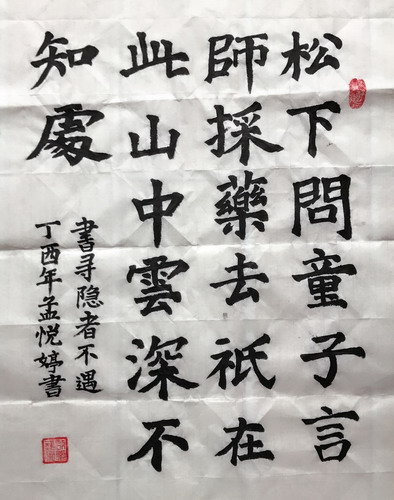 松下問童子言
師採藥去祇在
此山中雲深不
知處
書寻隐者不遇
丁酉年孟悦婷書